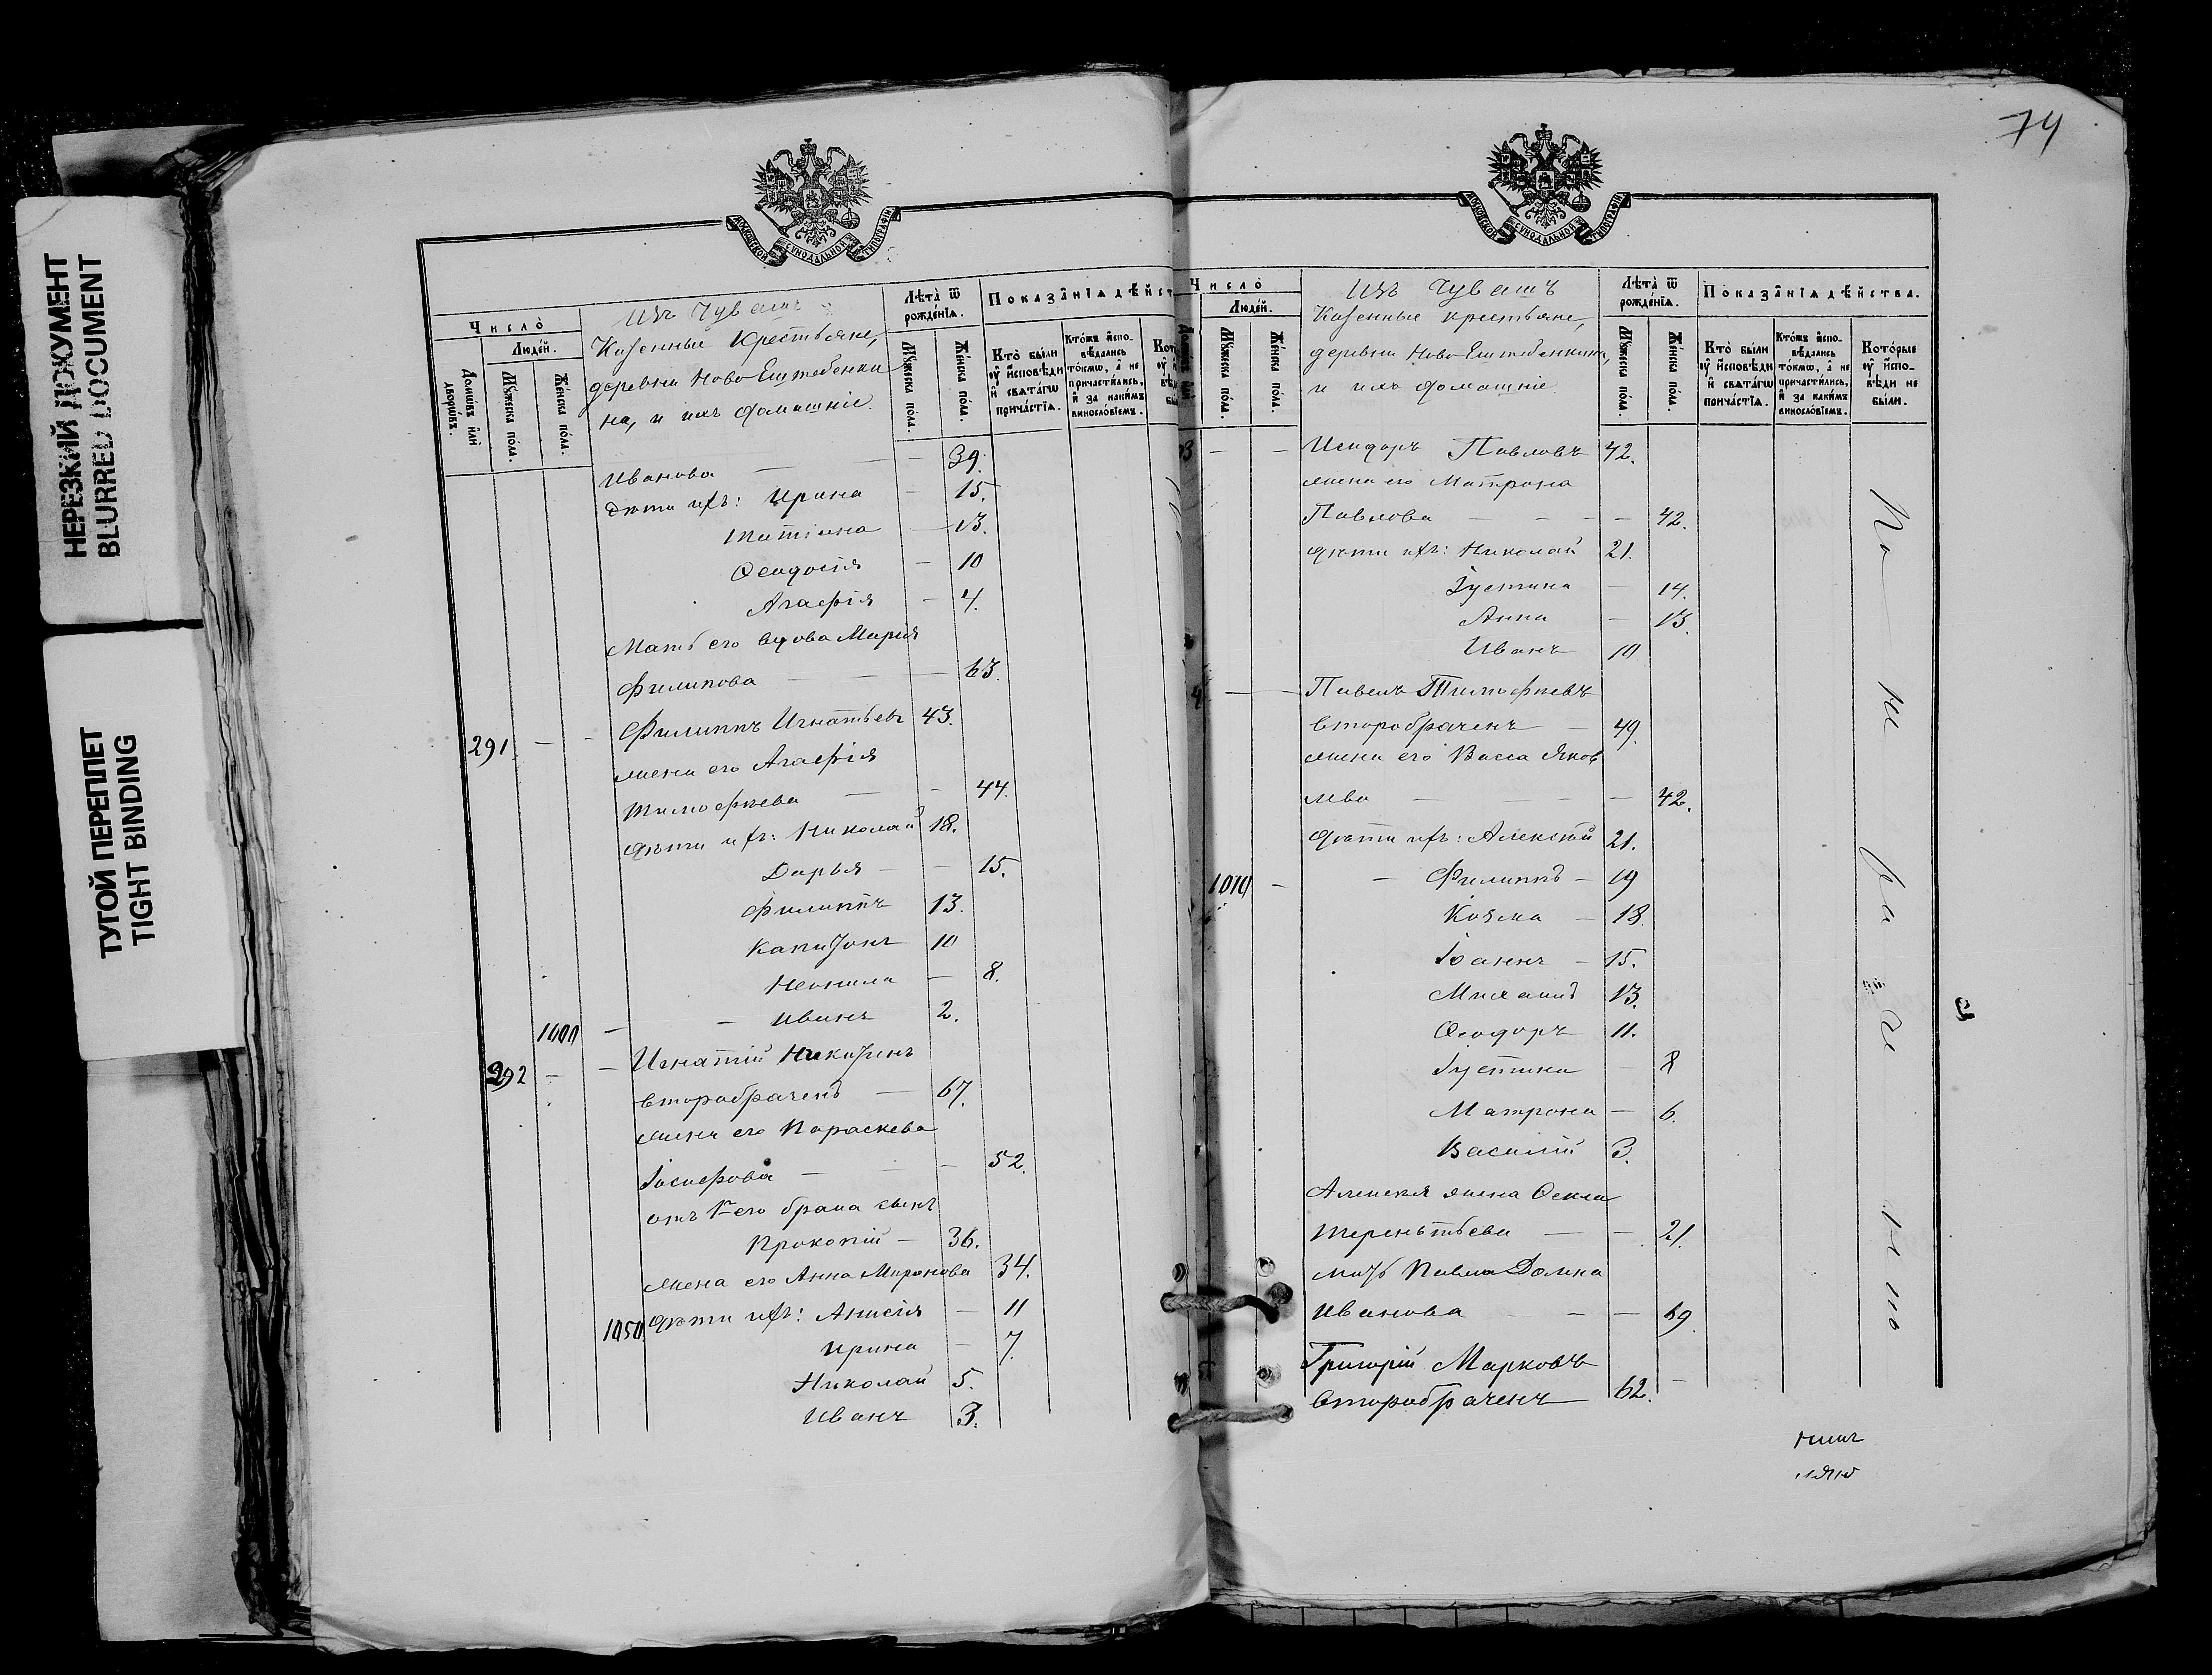 НЕРЕЗКИЙ ДОКУМЕНТ
BLURRED DOCUMENT
ТУГОЙ ПЕРЕПЛЕТ
TIGHT BINDING
МОСКОВСКОЙ СѴНОДАЛЬНОЙ ТИПОГРАФІИ
Число̀
Люде́й.
Домо́въ и҆лѝ дворо́въ.
Мꙋ́жеска по́ла.
Же́нска по́ла.
Изъ Чувашъ
Казенные Крестьяне,
деревни Ново-Ештебенки
на, и ихъ домашніе.
Лѣта̀ ѿ рожде́нїѧ.
Мꙋ́жеска по́ла.
Же́нска по́ла.
Показа̑нїѧ дѣ́йст
Кто̀ бы́ли ᲂу҆ и҆сповѣ́ди и҆ свѧта́гѡ прича́стїѧ.
Кто́жъ и҆сповѣ́дались то́кмѡ, а҆ не причасти́лись, и҆ за каки́мъ виносло́вїемъ.
Иванова — — 39.
дѣти ихъ: Ирина — 15.
Татіана — 13.
Ѳеодосія — 10
Агафія — 4.
Мать его вдова Марія
Филипова — — — 63.
291 — — Филиппъ Игнатьевъ 43.
жена его Агафія
Тимофѣева — — 44.
дѣти ихъ: Николай 18.
Дарья — — 15.
Филиппъ 13.
Капитонъ 10
Неонила — 8.
1000 — — Иванъ 2.
292 — — Игнатій Никитинъ
второбраченъ — 67.
жена его Параскева
Іосифова — — — 52.
отъ 1го его брака сынъ
Прокопій — 36.
жена его Анна Миронова 34.
1050 дѣти ихъ: Анисія — 11
Ирина — 7.
Николай 5.
Иванъ 3.
74
МОСКОВСКОЙ СѴНОДАЛЬНОЙ ТИПОГРАФІИ
Число̀
Люде́й.
Мꙋ́жеска по́ла.
Же́нска по́ла.
Изъ Чувашъ
Казенные крестьяне,
деревни Ново-Ештебенкина,
и ихъ домашніе
Лѣта̀ ѿ рожде́нїѧ.
Мꙋ́жеска по́ла.
Же́нска по́ла.
Показа̑нїѧ дѣ́йства.
Кто̀ бы́ли ᲂу҆ и҆сповѣ́ди и҆ свѧта́гѡ прича́стїѧ.
Кто́жъ и҆сповѣ́дались то́кмѡ, а҆ не причасти́лись, и҆ за каки́мъ виносло́вїемъ.
Кото́рые ᲂу҆ и҆сповѣ́ди не бы́ли.
3 — — Исидоръ Павловъ 42.
жена его Матрона
Павлова — — — — 42.
дѣти ихъ: Николай 21.
Іустина — 14.
Анна — 13.
Иванъ 10
4 — — Павелъ Тимофѣевъ
второбраченъ — 49.
жена его Васса Яков
лева — — — — 42.
дѣти ихъ: Алексѣй 21.
1010 — — Филиппъ — 19
Козма — 18.
Іоаннъ — 15.
Михаилъ 13.
Ѳеодоръ 11.
Іустина — 8
Матрона — 6.
Василій 3.
Алексѣя жена Ѳекла
Терентьева — — 21.
мать Павла Домна
Иванова — — — 69.
Григорій Марковъ
второбраченъ 62. —